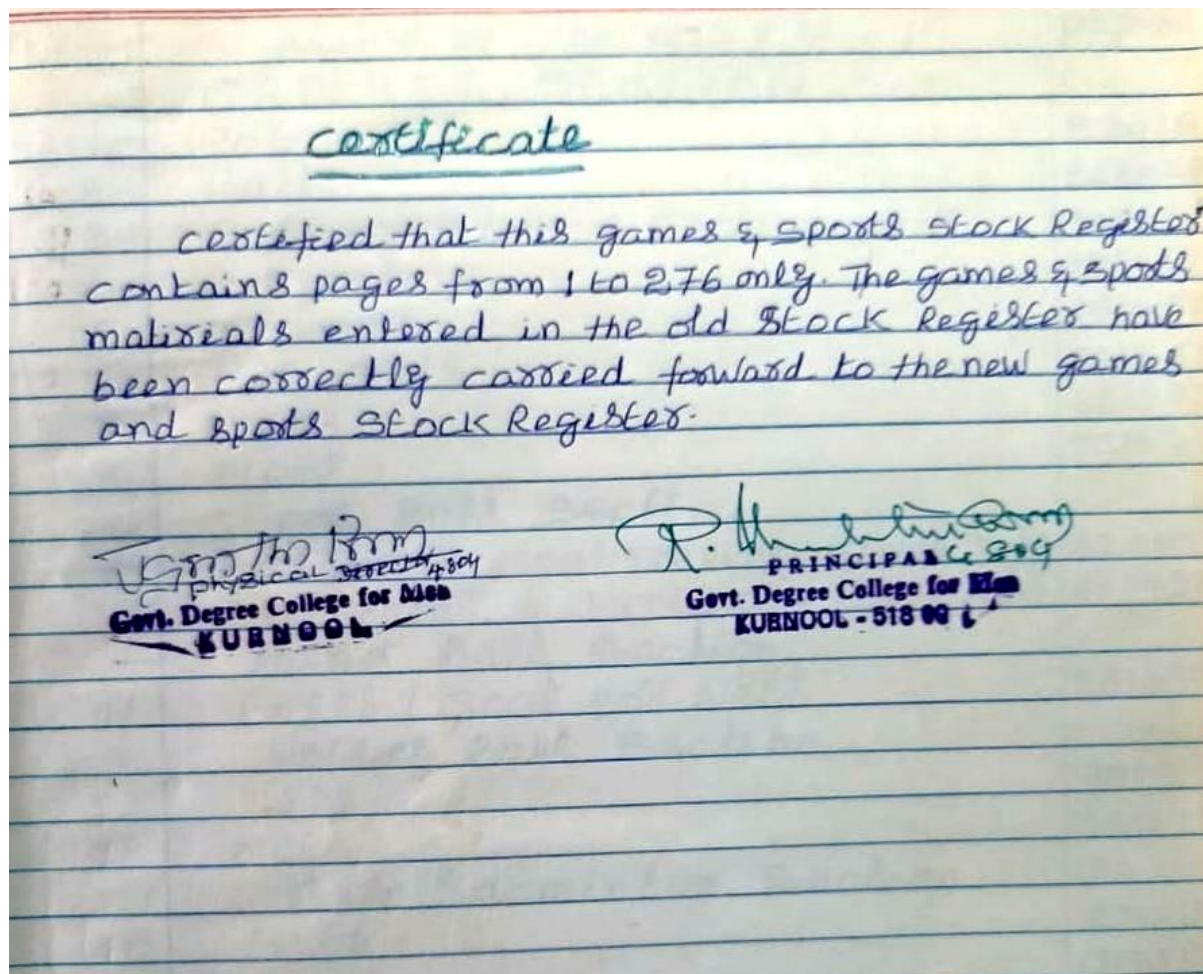 certificate
certified that this games & sports stock Register
contains pages from 1 to 276 only. The games & sports
matireals entered in the old Stock Register have
been correctly carried forward to the new games
and sports Stock Register.
Physical Director
Govt. Degree College for Men
KURNOOL
PRINCIPAL
Govt. Degree College for Men
KURNOOL - 518 00